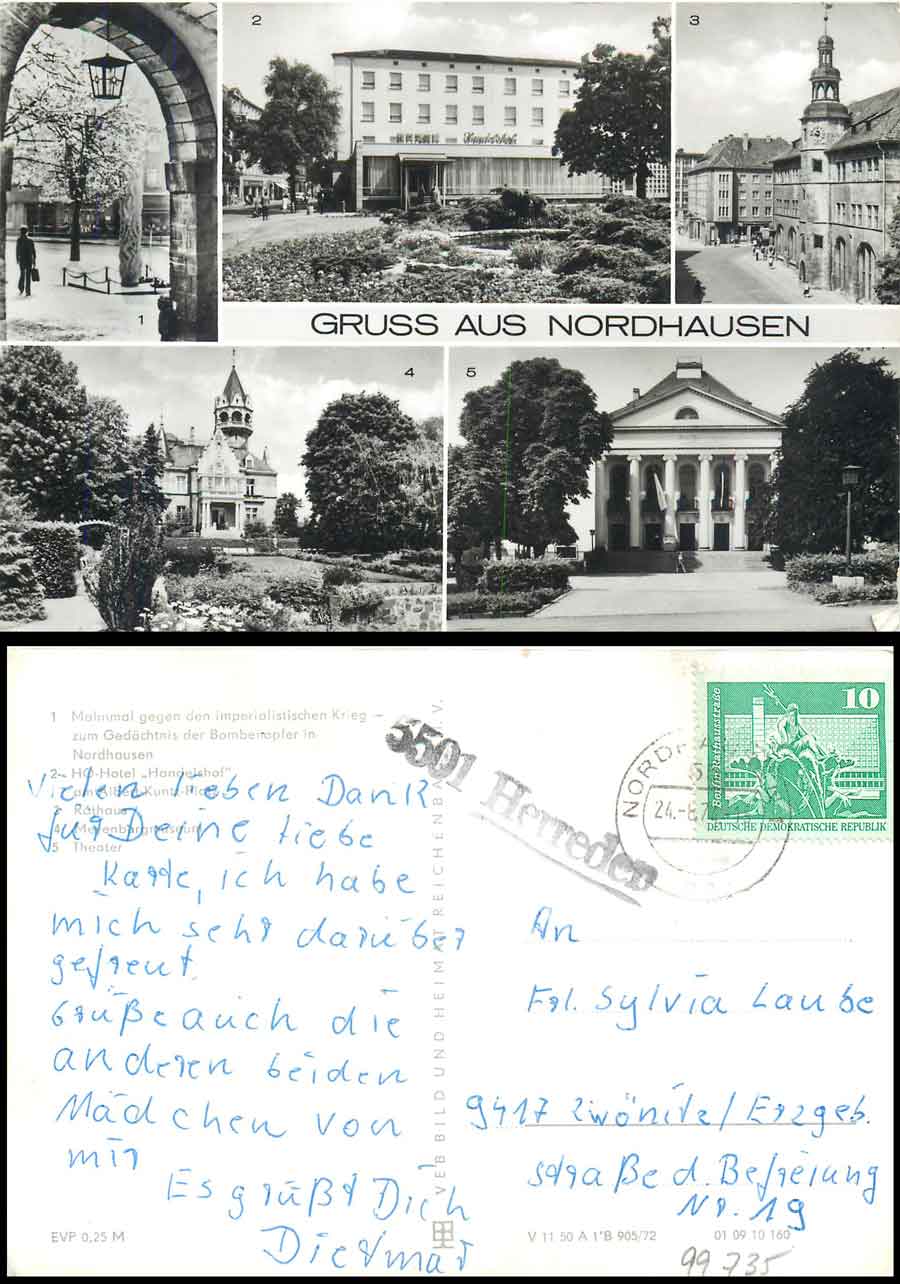 2
3
HOTEL Handelshof
1
GRUSS AUS NORDHAUSEN
4
5
1 Mahnmal gegen den imperialistischen Krieg –
zum Gedächtnis der Bombenopfer in
Nordhausen
2 HO-Hotel „Handelshof“
am Albert-Kuntz-Platz
3 Rathaus
4 Meyenburgmuseum
5 Theater
Vielen lieben Dank
für Deine liebe
Karte, ich habe
mich sehr darüber
gefreut.
Grüße auch die
anderen beiden
Mädchen von
mir
Es grüßt Dich
Dietmar
EVP 0,25 M
VEB BILD UND HEIMAT REICHENBACH I. V.
5501 Herreden
NORDHAUSEN
24.-8.7
10
Berlin-Rathausstraße
DEUTSCHE DEMOKRATISCHE REPUBLIK
An
Frl. Sylvia Laube
9417 Zwönitz/Erzgeb.
straße d. Befreiung
Nr. 19
V 11 50 A 1'B 905/72
01 09 10 160
99 735